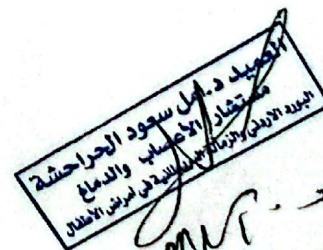 العميد د. امل سعود الحراحشة
مستشار الأعصاب والدماغ
البورد الأردني والزمالة البريطانية في امراض الأطفال